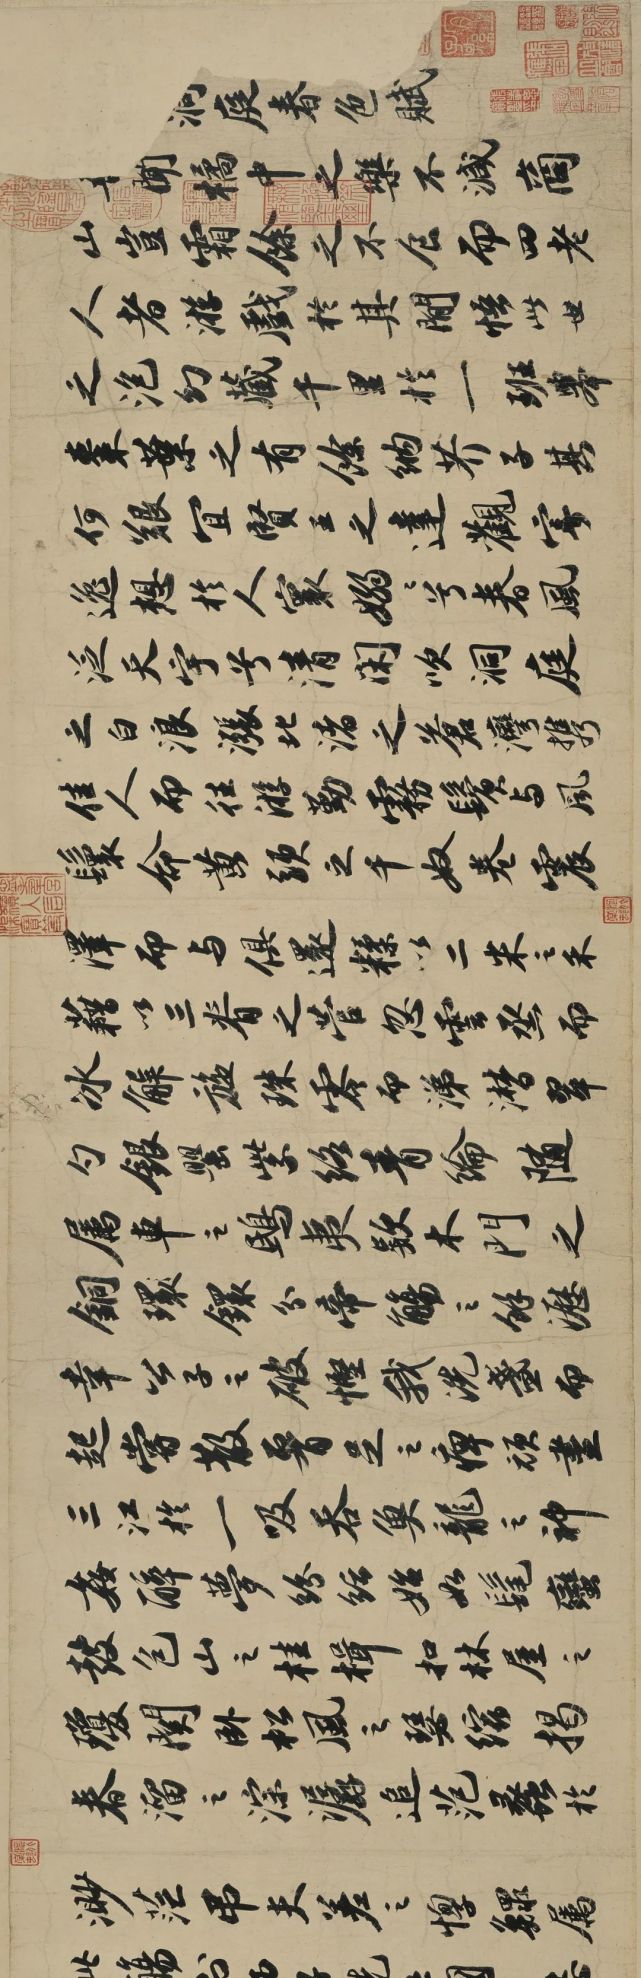 洞庭春色賦
吾聞橘中之樂不減商
山豈霜餘之不食而四老
人者游戲於其間悟此世
之泡幻藏千里於一班舉
棗葉之有餘納芥子其
何艱宜賢王之達觀寄
逸想於人寰嫋々兮春風
泛天宇兮清閑吹洞庭
之白浪漲北渚之蒼灣攜
佳人而往游勤霧鬢与風
鬟命黃頭之千奴卷震
澤而与俱還糅以二米之禾
藉以三脊之菅忽雲烝而
冰解旋珠零而涕潸翠
勺銀罌紫絡青綸隨
屬車之鴟夷款木門之
銅環鐶分帝觴之餘瀝
幸公子之破慳我洗盞而
起嘗散腰足之痹頑盡
三江於一吸吞魚龍之神
姦醉夢紛紜始如髦蠻
鼓包山之桂楫扣林屋之
瓊關臥松風之瑟縮揭
春溜之淙潺追范蠡於
渺茫吊夫差之惸鰥屬